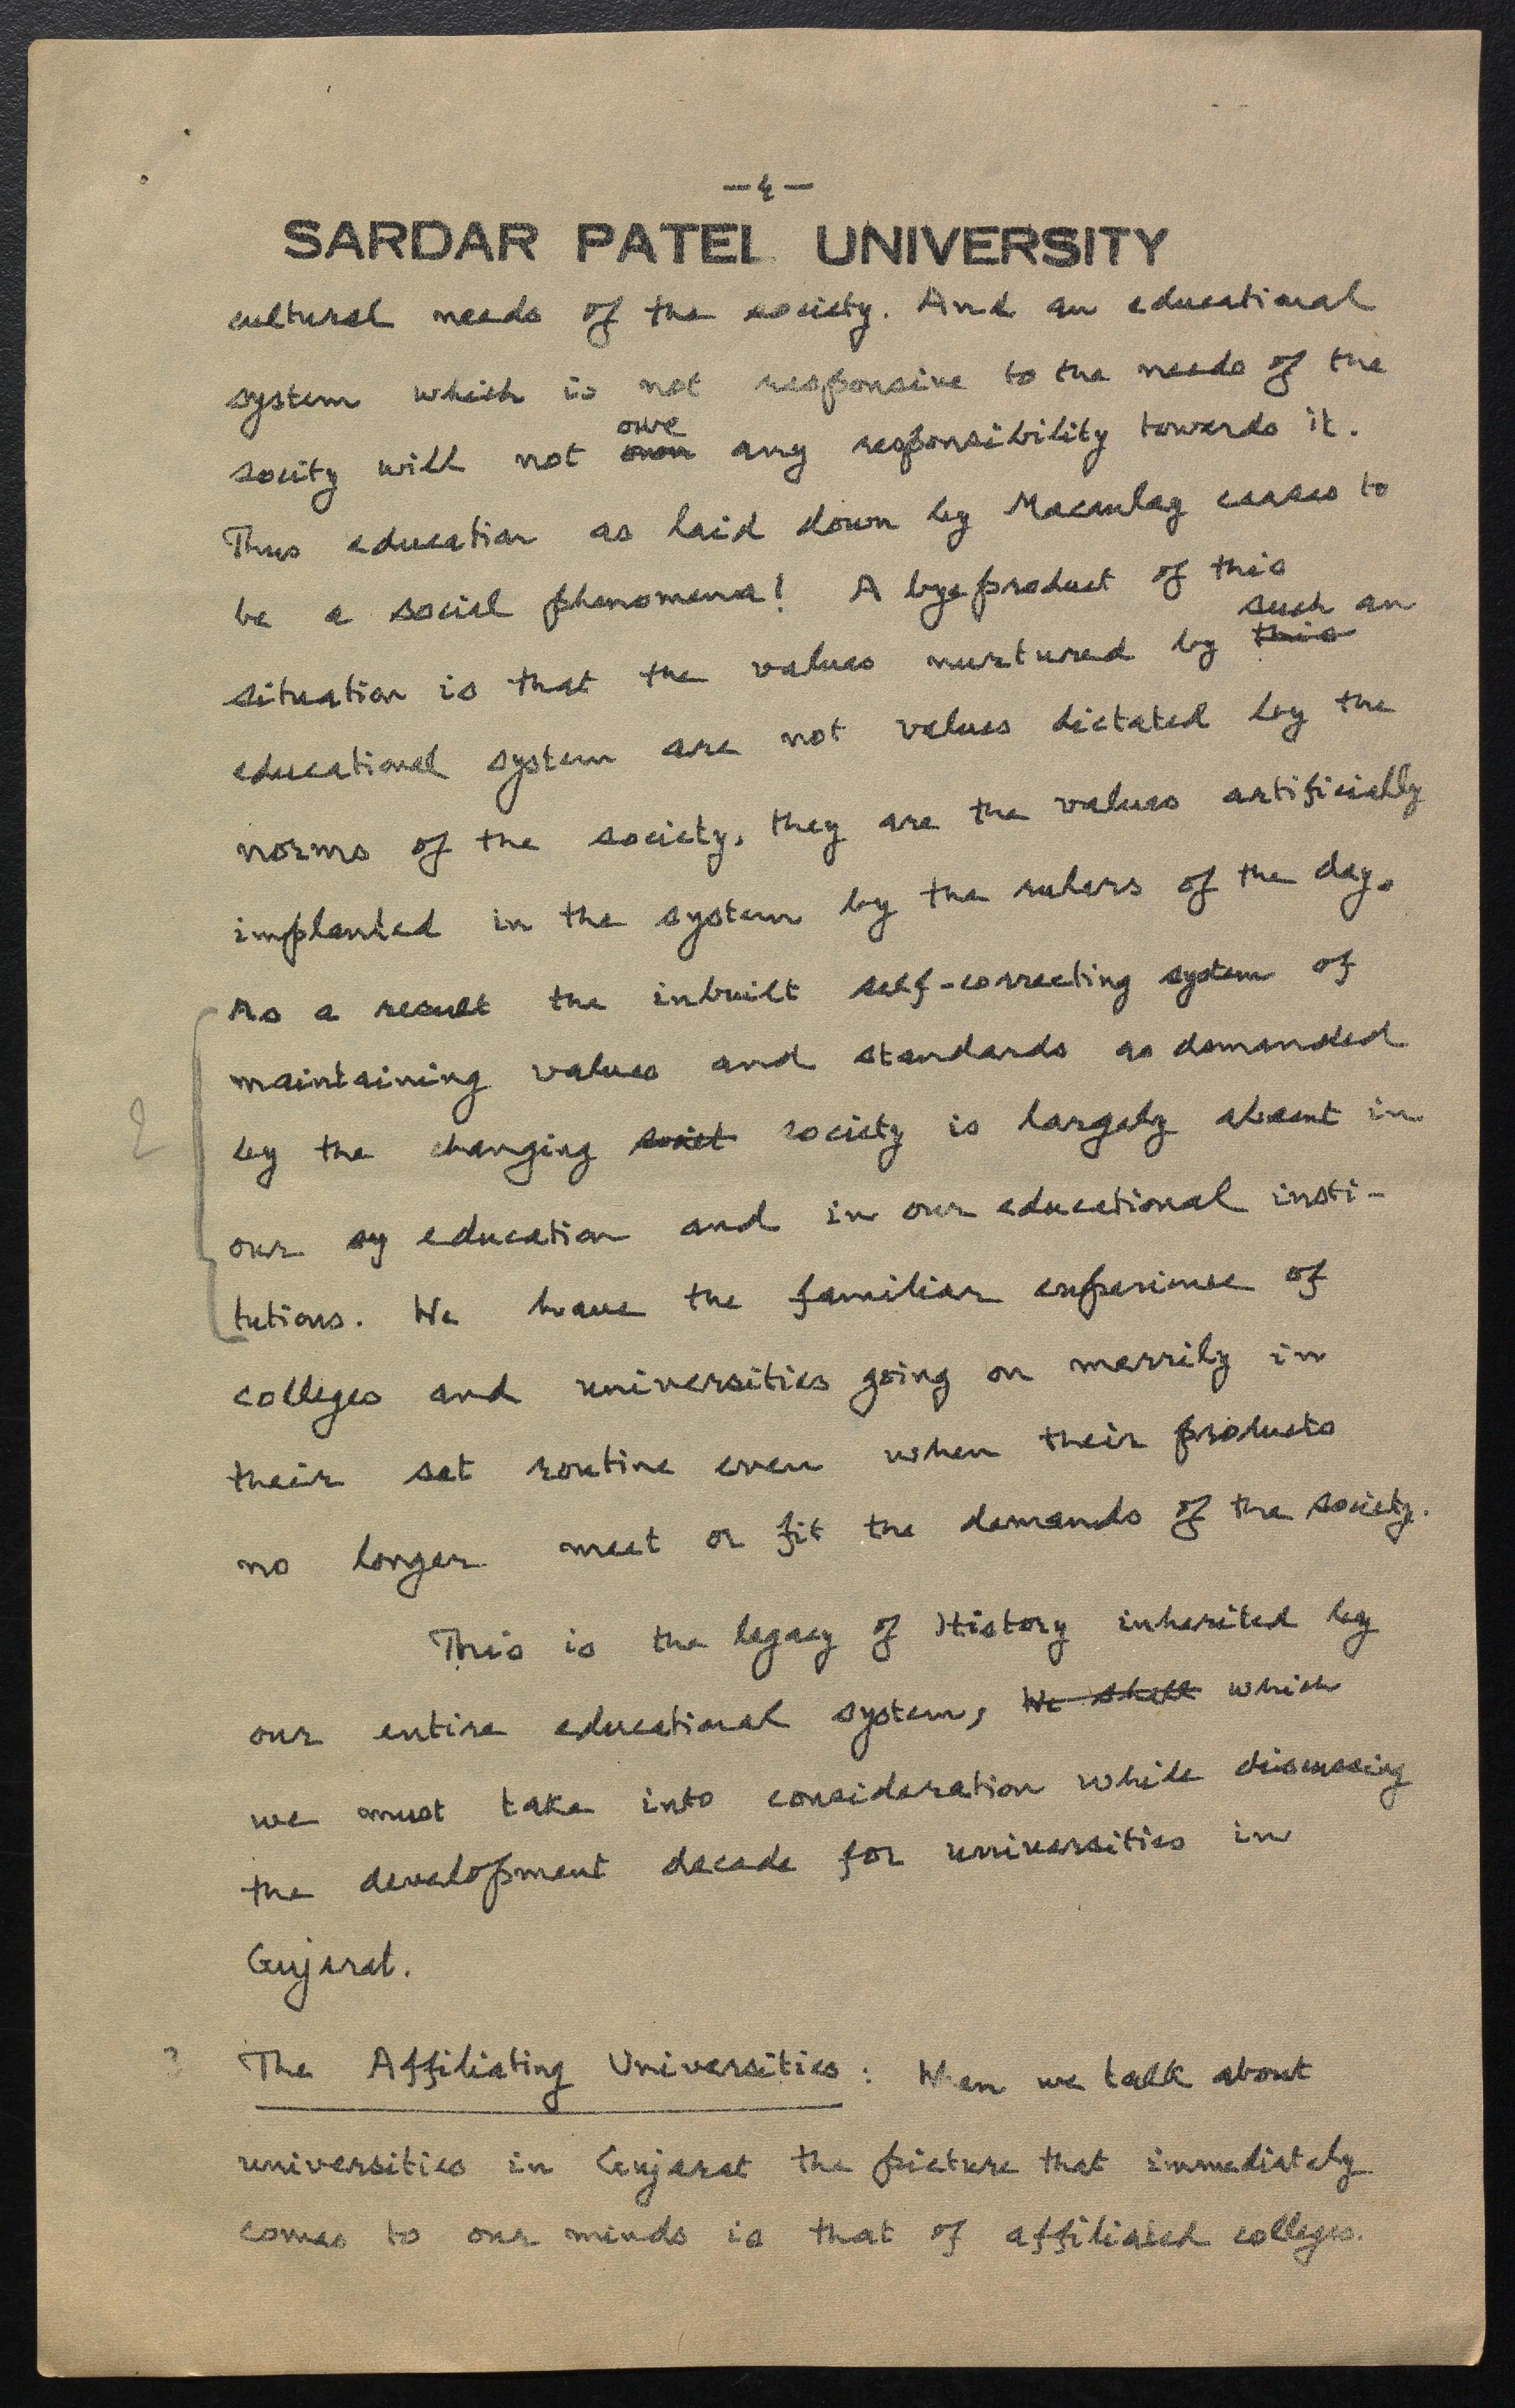 -4-
SARDAR PATEL UNIVERSITY
cultural needs of the society. And an educational
system which is not responsive to the needs of the
owe
socity will not own any responsibility towards it.
Thus education as laid down by Macaulay ceases to
be a social phenomena! A byeproduct of this
such an
situation is that the values nurtured by this
educational system are not values dictated by the
norms of the society, they are the values artificially
implanted in the system by the rulers of the day.
As a result the inbuilt self-correcting system of
maintaining values and standards as demanded
by the changing societ society is largely absent in
our sy education and in our educational insti-
tutions. We have the familiar experience of
colleges and universities going on merrily in
their set routine even when their products
no longer meet or fit the demands of the society.
This is the legacy of History inherited by
our entire educational system, We shall which
we must take into consideration while discussing
the development decade for universities in
Gujarat.
? The Affiliating Universities : When we talk about
universities in Gujarat the picture that immediately
comes to our minds is that of affiliated colleges.